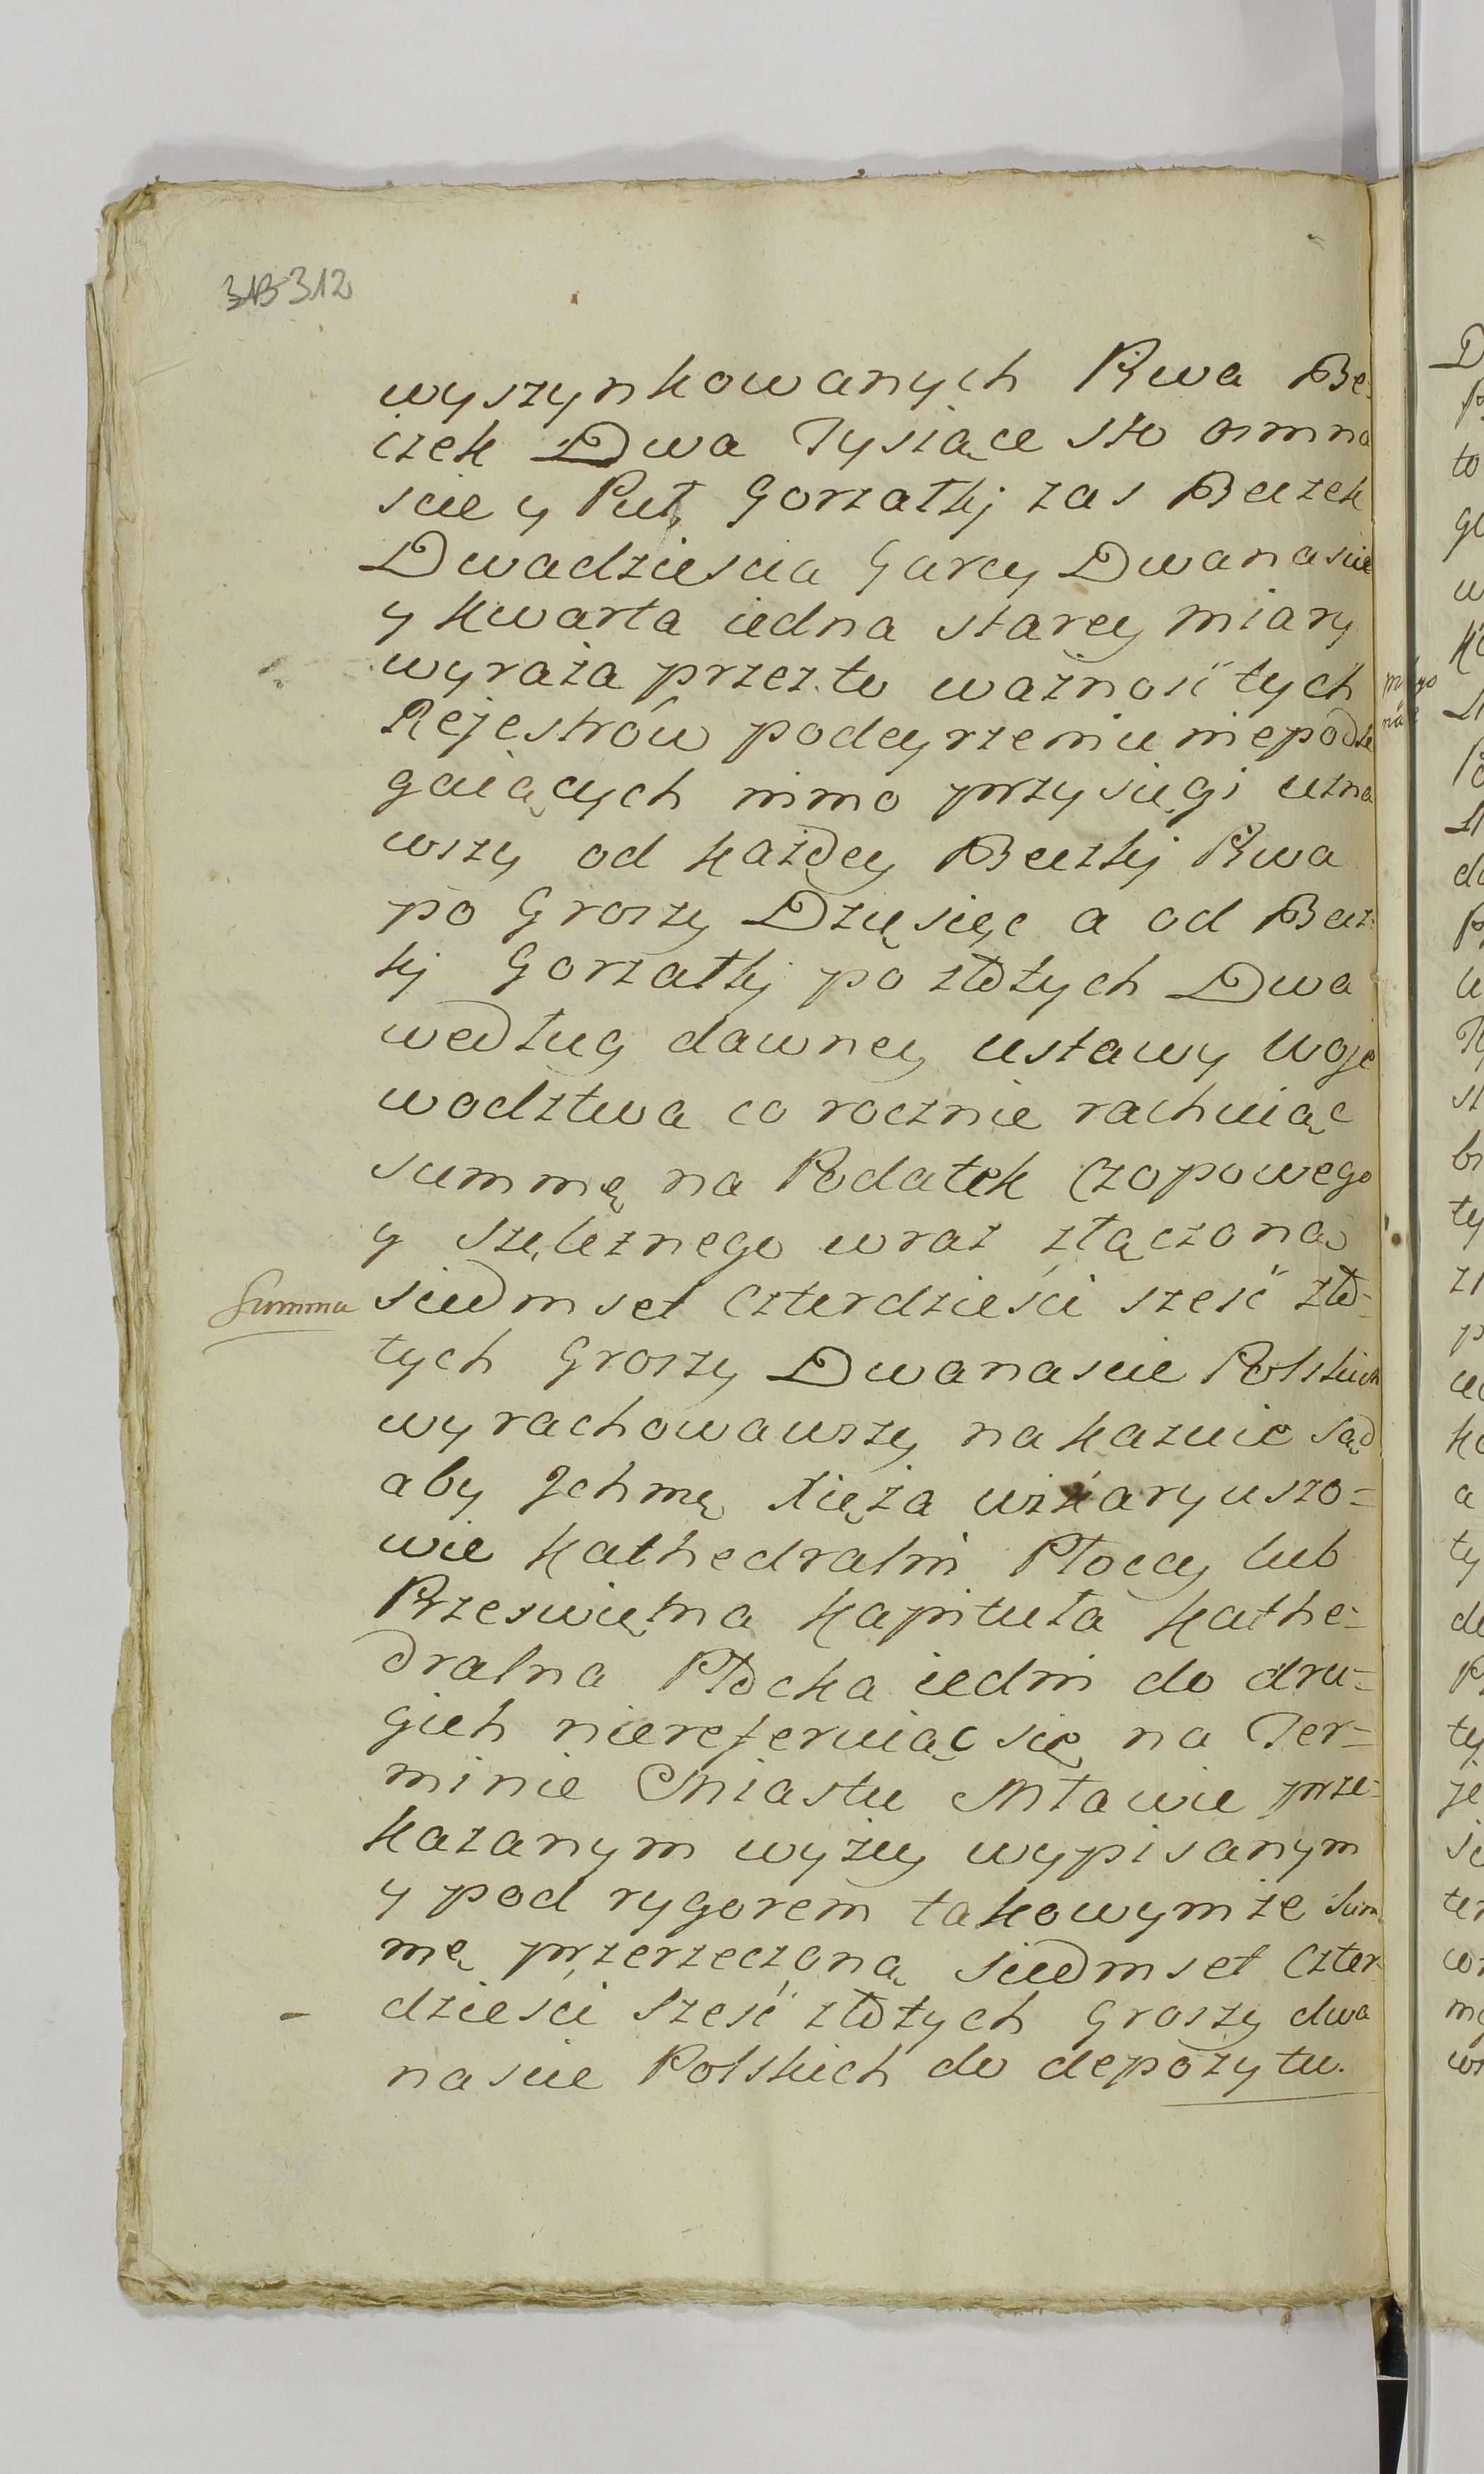 313 312
wyszynkowanych Piwa Be-
czek Dwa Tysiące sto osmna
scie y Puł, Gorzałkj zas Beczek
Dwadziescia Garcy Dwanascie
y kwarta iedna starey miary
wyraża przez to ważność tych
Rejestrów podeyrzeniu niepodle
gaiących mimo przysięgi uzna
wszy od każdey Beczkj Piwa
po Groszy Dzięsięc a od Becz-
kj Gorzałkj po złotych Dwa
według dawney ustawy Woje
wodztwa co rocznie rachuiąc
summę na Podatek Czopowego
y Szelężnego wraz złączoną
Summa
siedmset Czterdzieści sześć zło-
tych Groszy Dwanascie Polskich
wyrachowawszy nakazuie sąd
aby Jchmę Xięża wikaryuszo=
wie Kathedralni Płoccy lub
Przeswiętna Kapituła Kathe=
dralna Płocka iedni do dru=
gich niereferuiąc się na Ter=
minie Miastu Mławie prze=
kazanym wyżey wypisanym
y pod rygorem takowymże Sum
mę przerzeczoną siedmset Czter-
dziesci sześć złotych Groszy dwa
nascie Polskich do depozytu.